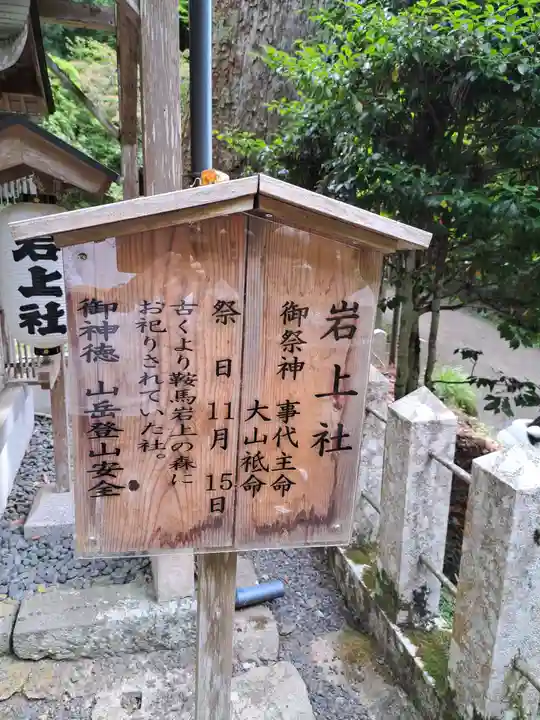 岩上社
御祭神 事代主命
大山祇命
祭 日 11月 15日
古くより鞍馬岩上の森に
お祀りされていた社。
御神徳 山岳登山安全
岩上社